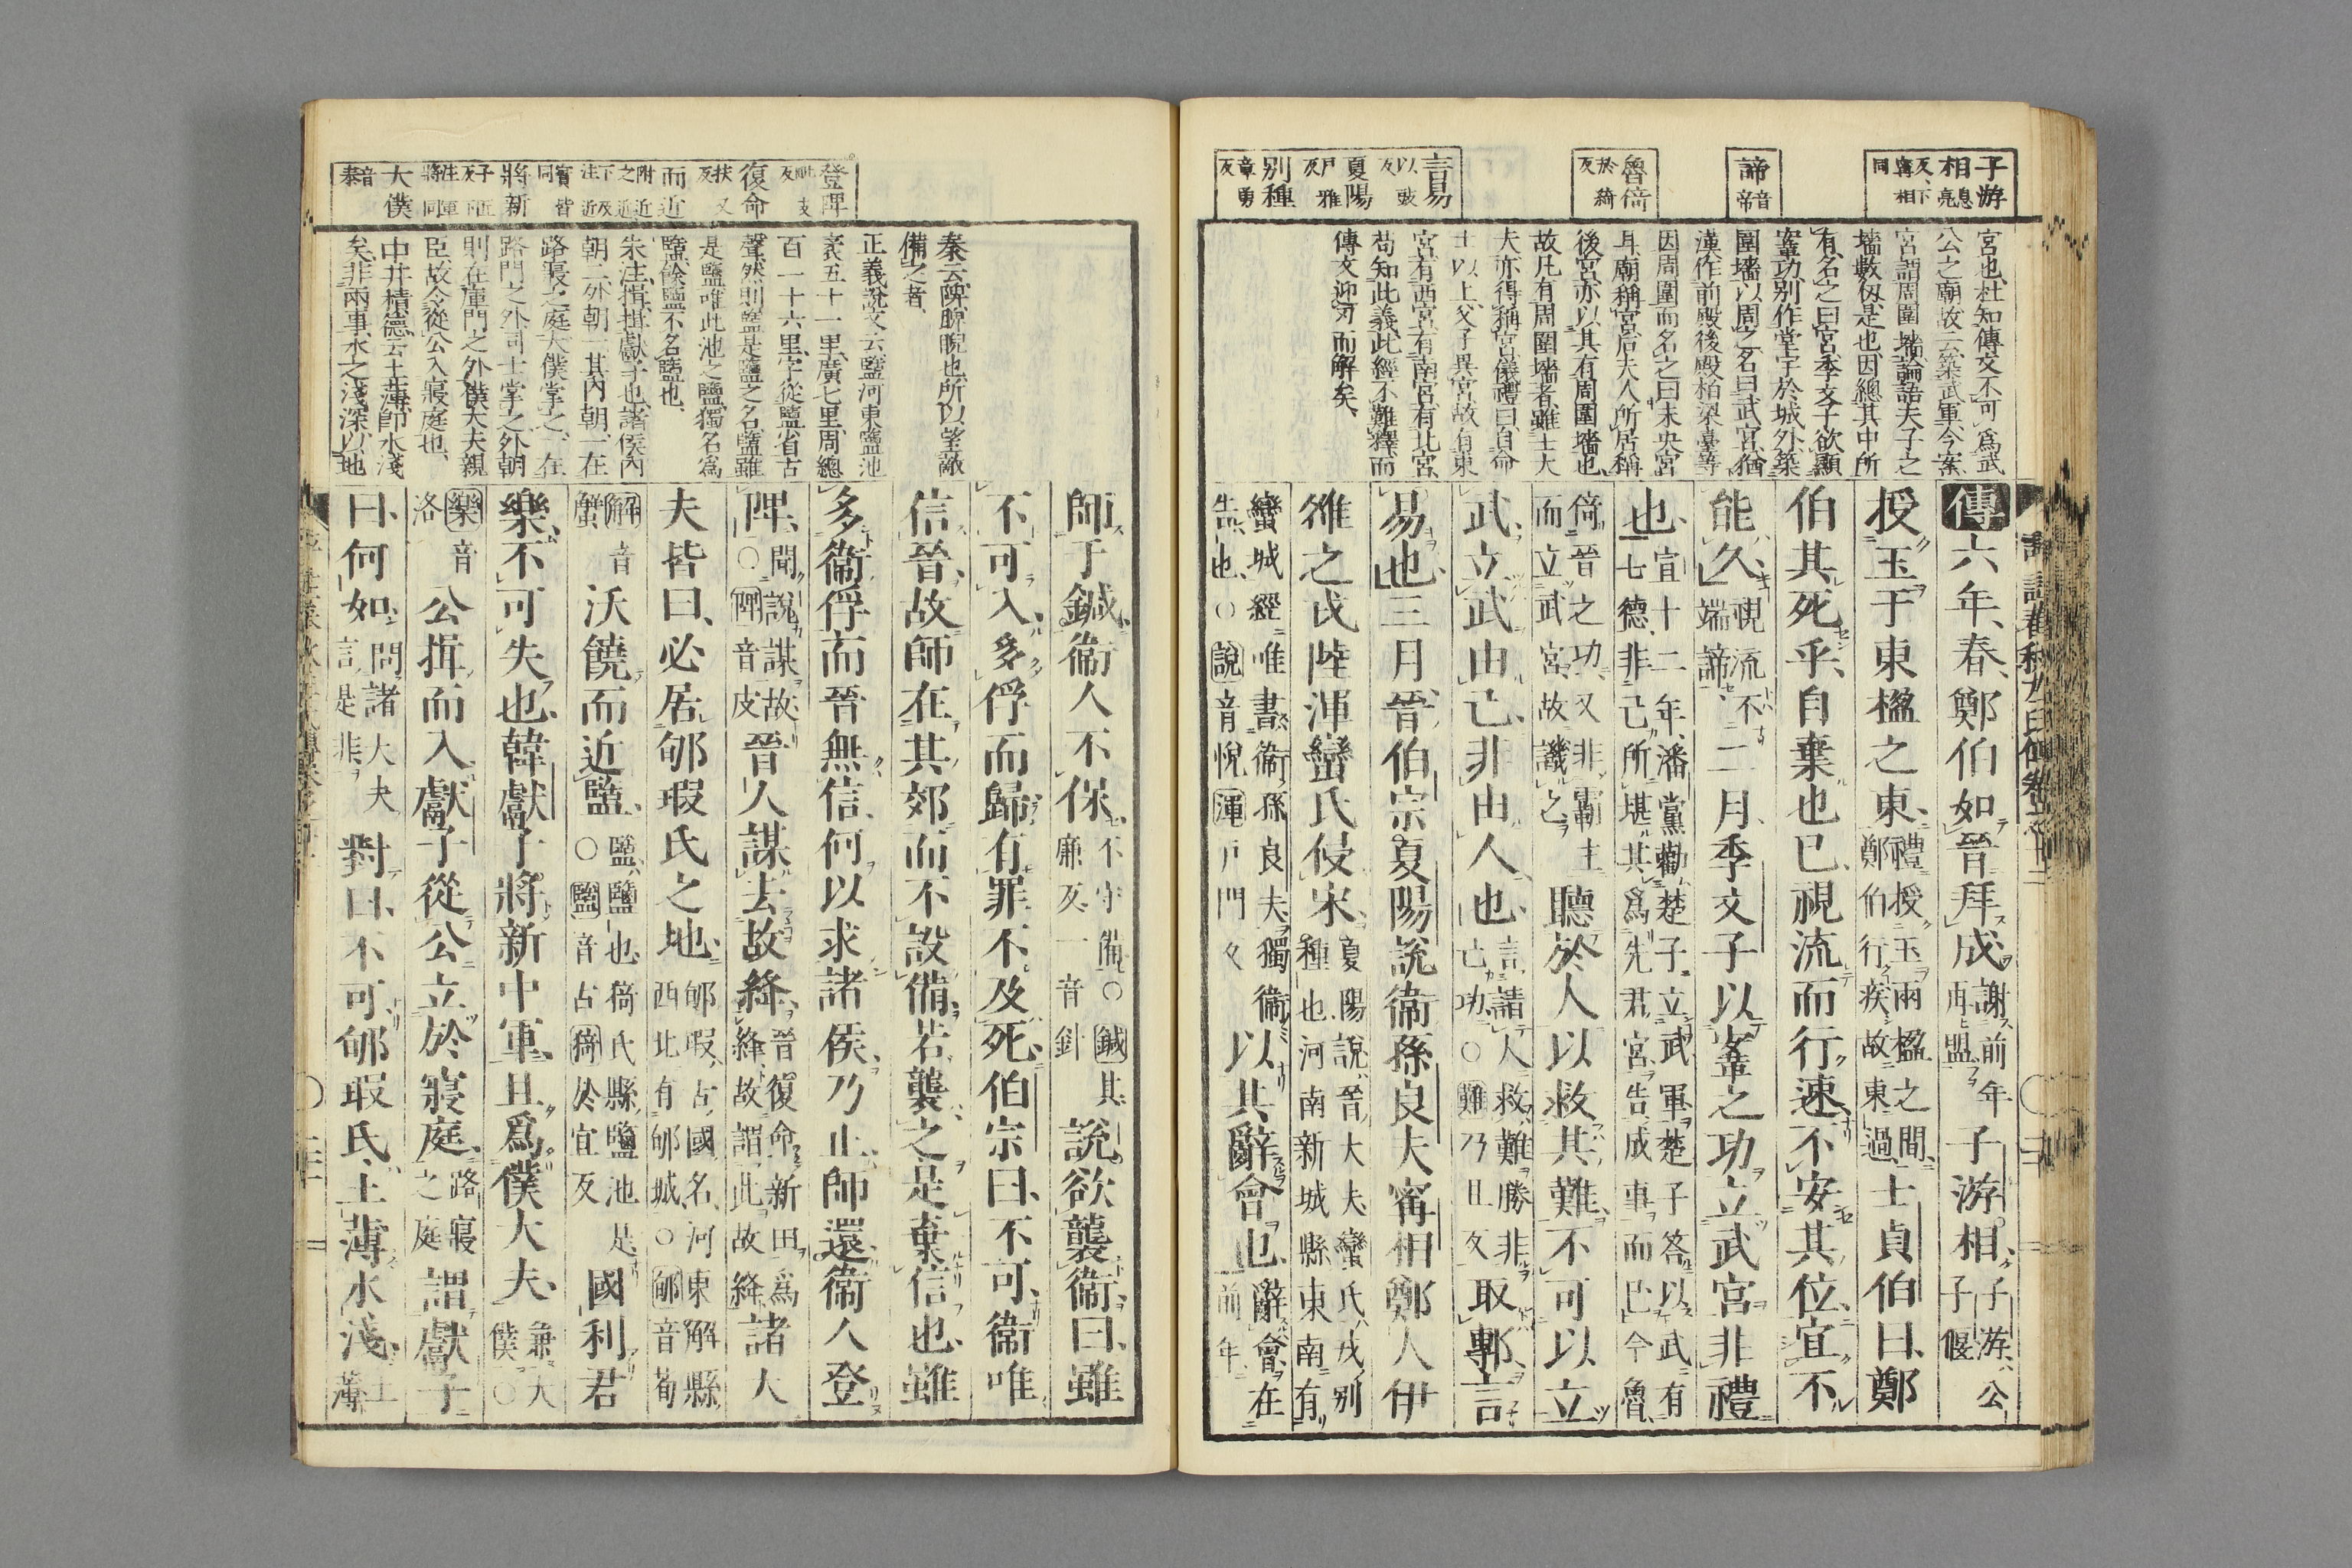 子游
相 息亮反、下甯相同
諦 音帝
魯倚 於綺反
言易 以豉反
夏陽 戶雅反
別種 章勇反
宮也、杜知傳文不可爲武
公之廟、故云築武軍、今案
宮謂周圍墻、論語夫子之
墻數仭是也、因總其中所
有、名之曰宮、季文子欲顯
鞌功、別作堂宇於城外、築
圍墻以周之、名曰武宮、猶
漢作前殿後殿柏梁臺等
因周圍而名之曰未央宮
耳、廟稱宮、后夫人所居稱
後宮、亦以其有周圍墻也、
故凡有周圍墻者、雖士大
夫亦得稱宮、儀禮曰、自命
士以上、父子異宮、故有東
宮有西宮、有南宮有北宮、
苟知此義、此經不難釋、而
傳文迎刃而解矣、
傳六年、春、鄭伯如晉拜成 謝前年再盟 子游相、子游、公子偃
授玉于東楹之東、禮、授玉兩楹之間、鄭伯行疾、故東過 士貞伯曰、鄭
伯其死乎、自棄也已、視流而行速、不安其位、宜不
能久、視流、不端諦 二月、季文子以鞌之功立武宮、非禮
也、宣十二年、潘黨勸楚子立武軍、楚子荅以武有七德、非己所堪、其爲先君宮、告成事而已、今魯
倚晉之功、又非霸主、而立武宮、故譏之 聽於人以救其難、不可以立
武、立武由己、非由人也、言請人救難、勝非己功、○難乃旦反 取鄟、言
易也、三月、晉伯宗夏陽說衞孫良夫甯相鄭人伊
雒之戎陸渾蠻氏侵宋、夏陽說、晉大夫、蠻氏、戎別種也、河南新城縣東南有
蠻城、經唯書衞孫良夫、獨衞告也、○說音悅渾戶門反 以其辭會也、辭會、在前年
登陴 毗支反
復命 扶又反
而近 附近之近、下及注
將新 子匠反、注將軍同
大僕 音泰
秦云、陴、睥睨也、所以望敵
備之者、
正義說文云、盬、河東鹽池、
袤五十一里、廣七里、周總
百一十六里、字從鹽省古
聲、然則盬是鹽之名、鹽雖
是鹽、唯此池之鹽、獨名爲
盬、餘鹽不名盬也、
朱注、揖、揖獻子也、諸侯内
朝二、外朝一、其内朝一在
路寢之庭、大僕掌之、一在
路門之外、司士掌之、外朝
則在庫門之外、僕大夫親
臣、故令從公入寢庭也、
中井積德云、土薄、卽水淺
矣、非兩事、水之淺深、以地
師于鍼、衞人不保、不守備、○鍼其廉反、一音針 說欲襲衞、曰、雖
不可入、多俘而歸、有罪不及死、伯宗曰、不可、衞唯
信晉、故師在其郊、而不設備、若襲之、是棄信也、雖
多衞俘、而晉無信、何以求諸侯、乃止、師還、衞人登
陴、聞說謀故、○陴音皮 晉人謀去故絳、晉復命新田爲絳、故謂此故絳 諸大
夫皆曰、必居郇瑕氏之地、郇瑕、古國名、河東解縣西北有郇城、○郇音荀
解音蟹 沃饒而近盬、盬、鹽也、猗氏縣鹽池是、○盬音古猗於宜反 國利君
樂、不可失也、韓獻子將新中軍、且爲僕大夫、兼大僕○
樂音洛 公揖而入、獻子從、公立於寢庭、路寢之庭 謂獻子
曰、何如、問諸大夫言是非 對曰、不可、郇瑕氏、土薄水淺、土薄